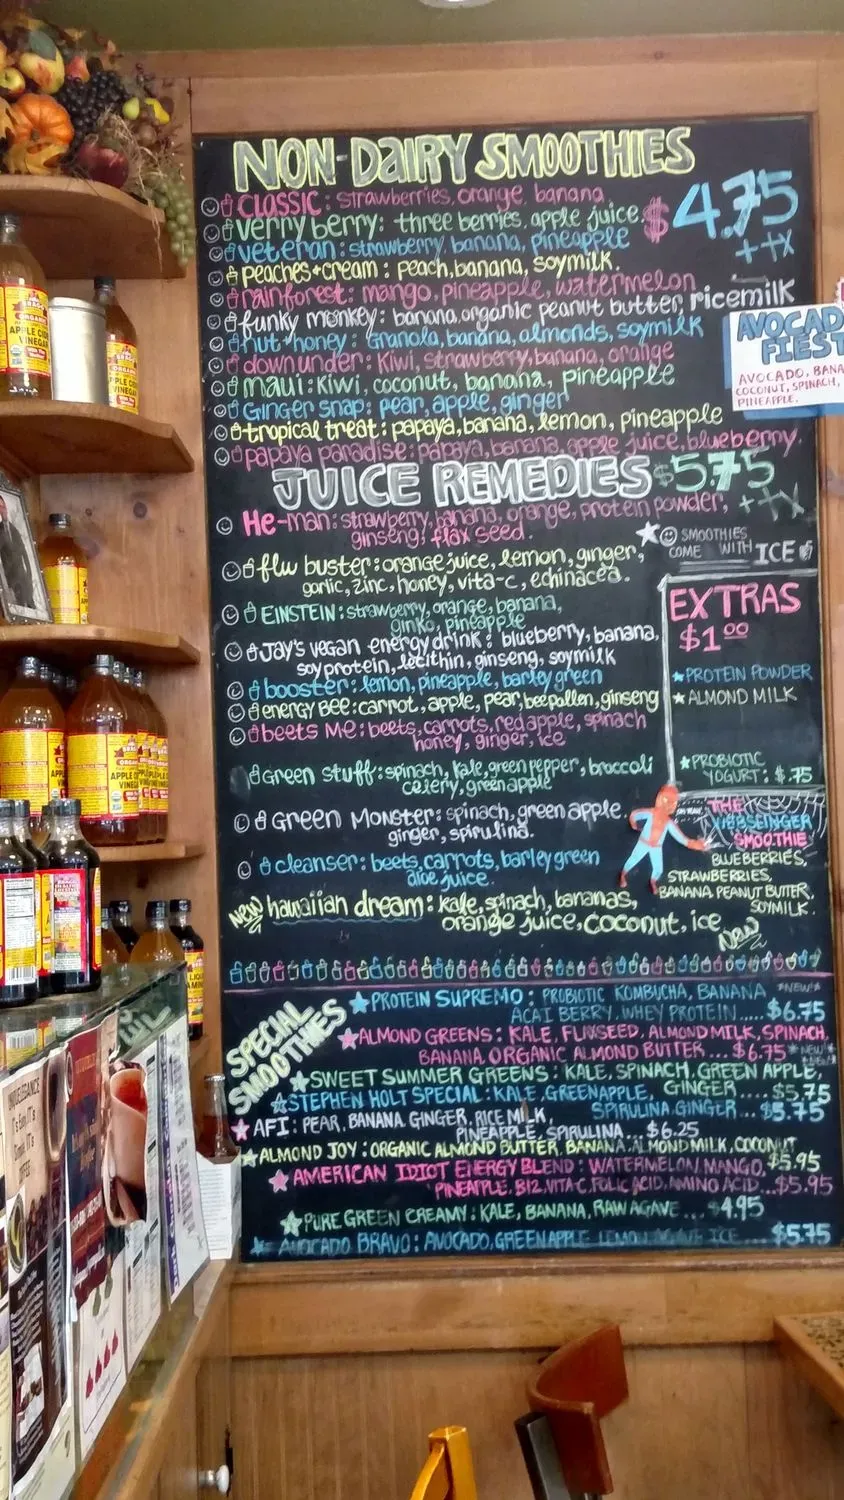 NON-DAIRY SMOOTHIES
$4.75
++X
CLASSIC: strawberries, orange, banana
verry berry: three berries, apple juice.
veteran: strawberry, banana, pineapple
peaches+cream: peach, banana, soymilk.
rainforest: mango, pineapple, watermelon
funky monkey: banana, organic peanut butter, ricemilk
nut-honey: Granola, banana, almonds, soymilk
down under: Kiwi, strawberry, banana, orange
maui: Kiwi, coconut, banana, pineapple
Ginger snap: pear, apple, ginger
tropical treat: papaya, banana, lemon, pineapple
papaya paradise: papaya, banana, apple juice, blueberry.
AVOCADO
FIEST
AVOCADO, BANA
COCONUT, SPINACH,
PINEAPPLE.
JUICE REMEDIES $5.75
++X
He-man: strawberry, banana, orange, protein powder,
ginseng, flax seed.
flu buster: orange juice, lemon, ginger,
garlic, zinc, honey, vita-c, echinacea.
EINSTEIN: strawberry, orange, banana,
ginko, pineapple
Jay's vegan energy drink: blueberry, banana,
soy protein, lecithin, ginseng, soymilk
booster: lemon, pineapple, barley green
energy Bee: carrot, apple, pear, beepollen, ginseng
beets Me: beets, carrots, red apple, spinach
honey, ginger, ice
Green stuff: spinach, kale, green pepper, broccoli
celery, green apple
Green Monster: spinach, green apple.
ginger, spirulina.
cleanser: beets, carrots, barley green
aloe juice.
NEW hawaiian dream: kale, spinach, bananas,
orange juice, coconut, ice
New
SMOOTHIES
COME WITH ICE
EXTRAS
$1.00
PROTEIN POWDER
ALMOND MILK
PROBIOTIC
YOGURT: $.75
THE
WEBSLINGER
SMOOTHIE
BLUEBERRIES,
STRAWBERRIES,
BANANA, PEANUT BUTTER,
SOYMILK.
SPECIAL
SMOOTHIES
PROTEIN SUPREMO: PROBIOTIC KOMBUCHA, BANANA *NEW!*
ACAI BERRY, WHEY PROTEIN..... $6.75
ALMOND GREENS: KALE, FLAXSEED, ALMOND MILK, SPINACH,
BANANA, ORGANIC ALMOND BUTTER... $6.75 *NEW*
SWEET SUMMER GREENS: KALE, SPINACH, GREEN APPLE,
GINGER .... $5.75
STEPHEN HOLT SPECIAL: KALE, GREENAPPLE,
SPIRULINA, GINGER... $5.75
AFI: PEAR, BANANA, GINGER, RICE MILK,
PINEAPPLE, SPIRULINA... $6.25
ALMOND JOY: ORGANIC ALMOND BUTTER, BANANA, ALMOND MILK, COCONUT
$5.95
AMERICAN IDIOT ENERGY BLEND: WATERMELON, MANGO,
PINEAPPLE, B12, VITA-C, FOLIC ACID, AMINO ACID... $5.95
PURE GREEN CREAMY: KALE, BANANA, RAW AGAVE... $4.95
AVOCADO BRAVO: AVOCADO, GREENAPPLE, LEMON, AGAVE, ICE ... $5.75
BRAGG
ORGANIC
APPLE CIDER
VINEGAR
BRAGG
ORGANIC
VINEGAR
BRAGG
APPLE CIDER
VINEGAR